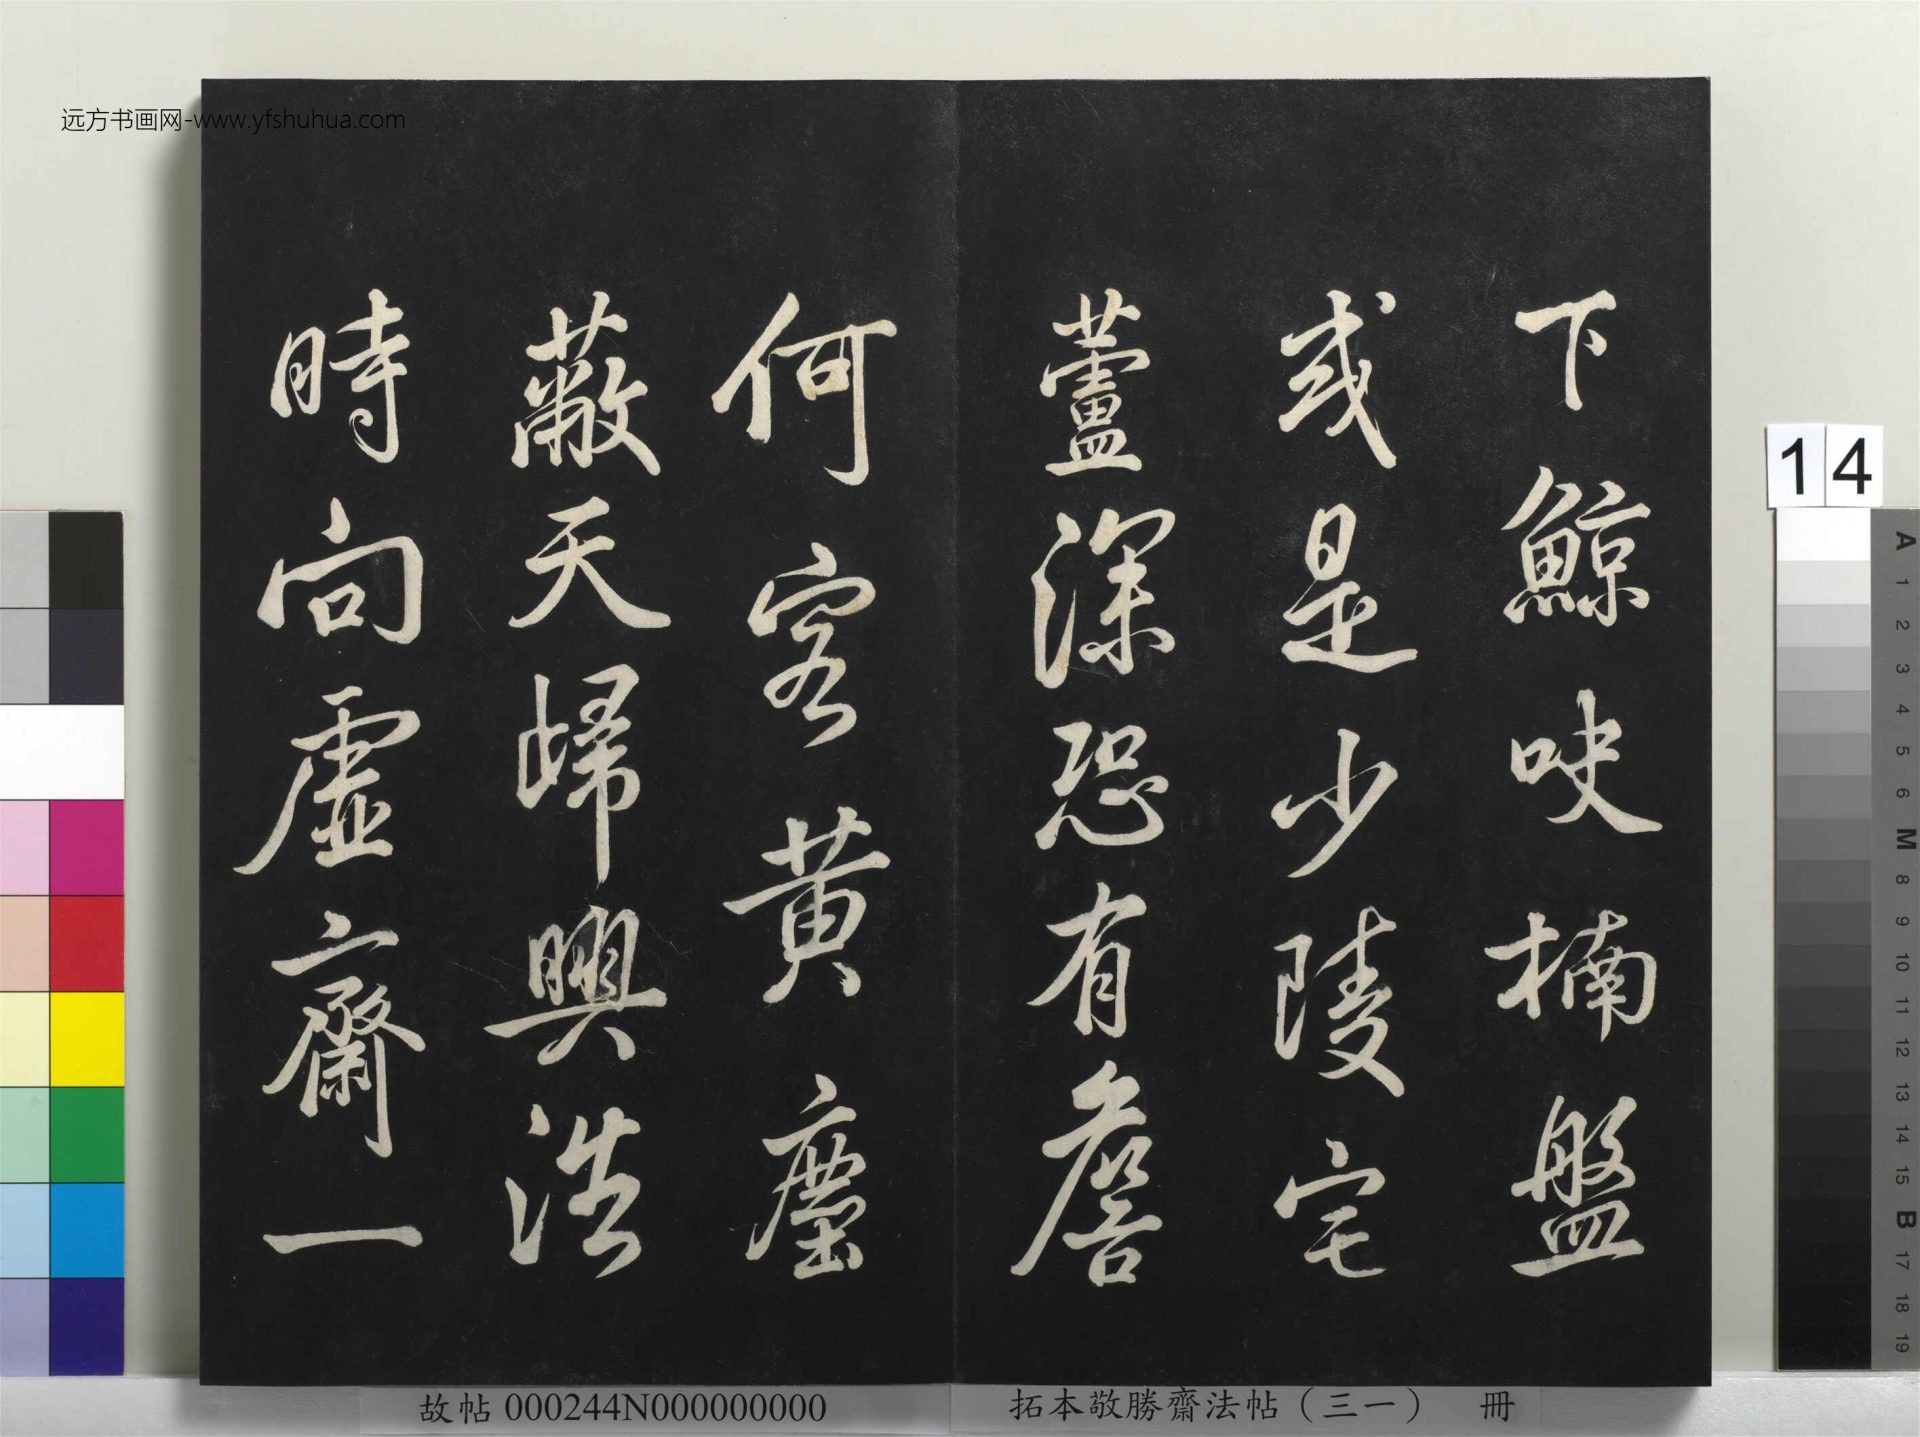 下鯨吠楠盤
或是少陵宅
蘆深恐有詹
何客黄塵
蔽天歸興浩
時向虛齋一
远方书画网-www.yfshuhua.com
故帖 000244N000000000
拓本敬勝齋法帖（三一） 冊
14
A
1
2
3
4
5
6
M
8
9
10
11
12
13
14
15
B
17
18
19